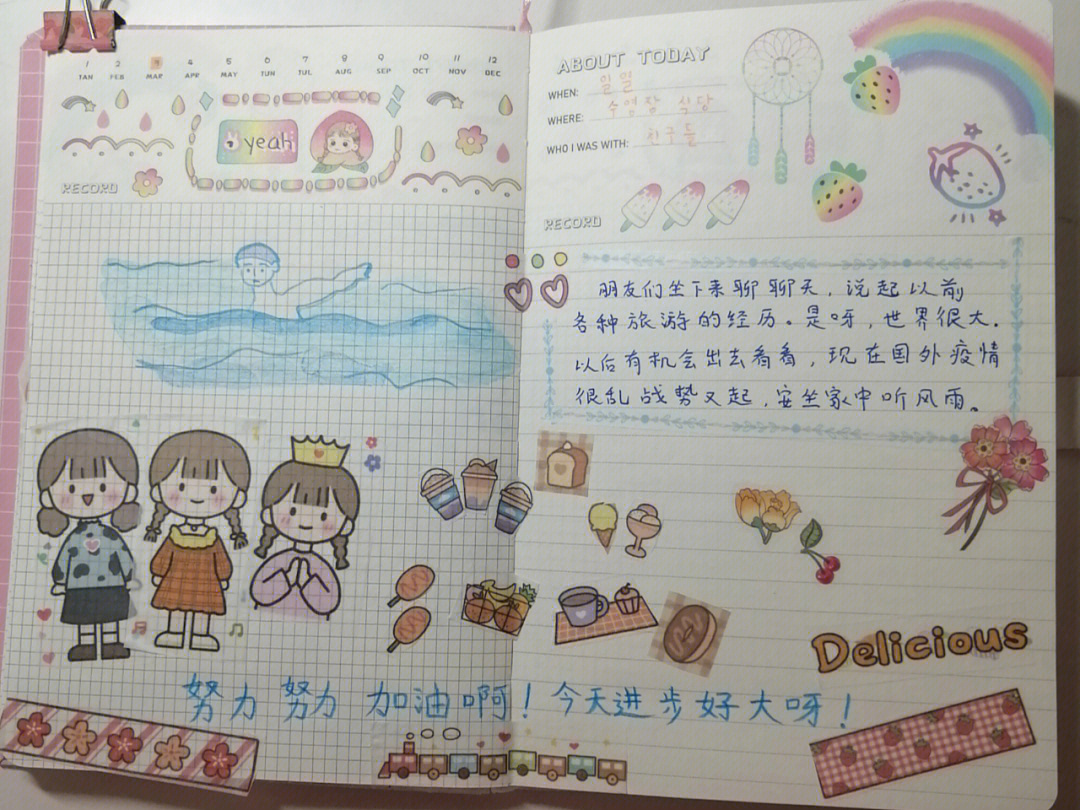 1 2 3 4 5 6 7 8 9 10 11 12
JAN FEB MAR APR MAY JUN JUL AUG SEP OCT NOV DEC
yeah
RECORD
ABOUT TODAY
WHEN: 일일
WHERE: 수영장 식당
WHO I WAS WITH: 친구들
RECORD
朋友们坐下来聊聊天，说起以前
各种旅游的经历。是呀，世界很大.
以后有机会出去看看，现在国外疫情
很乱战势又起，安坐家中听风雨。
Delicious
努力 努力 加油啊！今天进步好大呀！